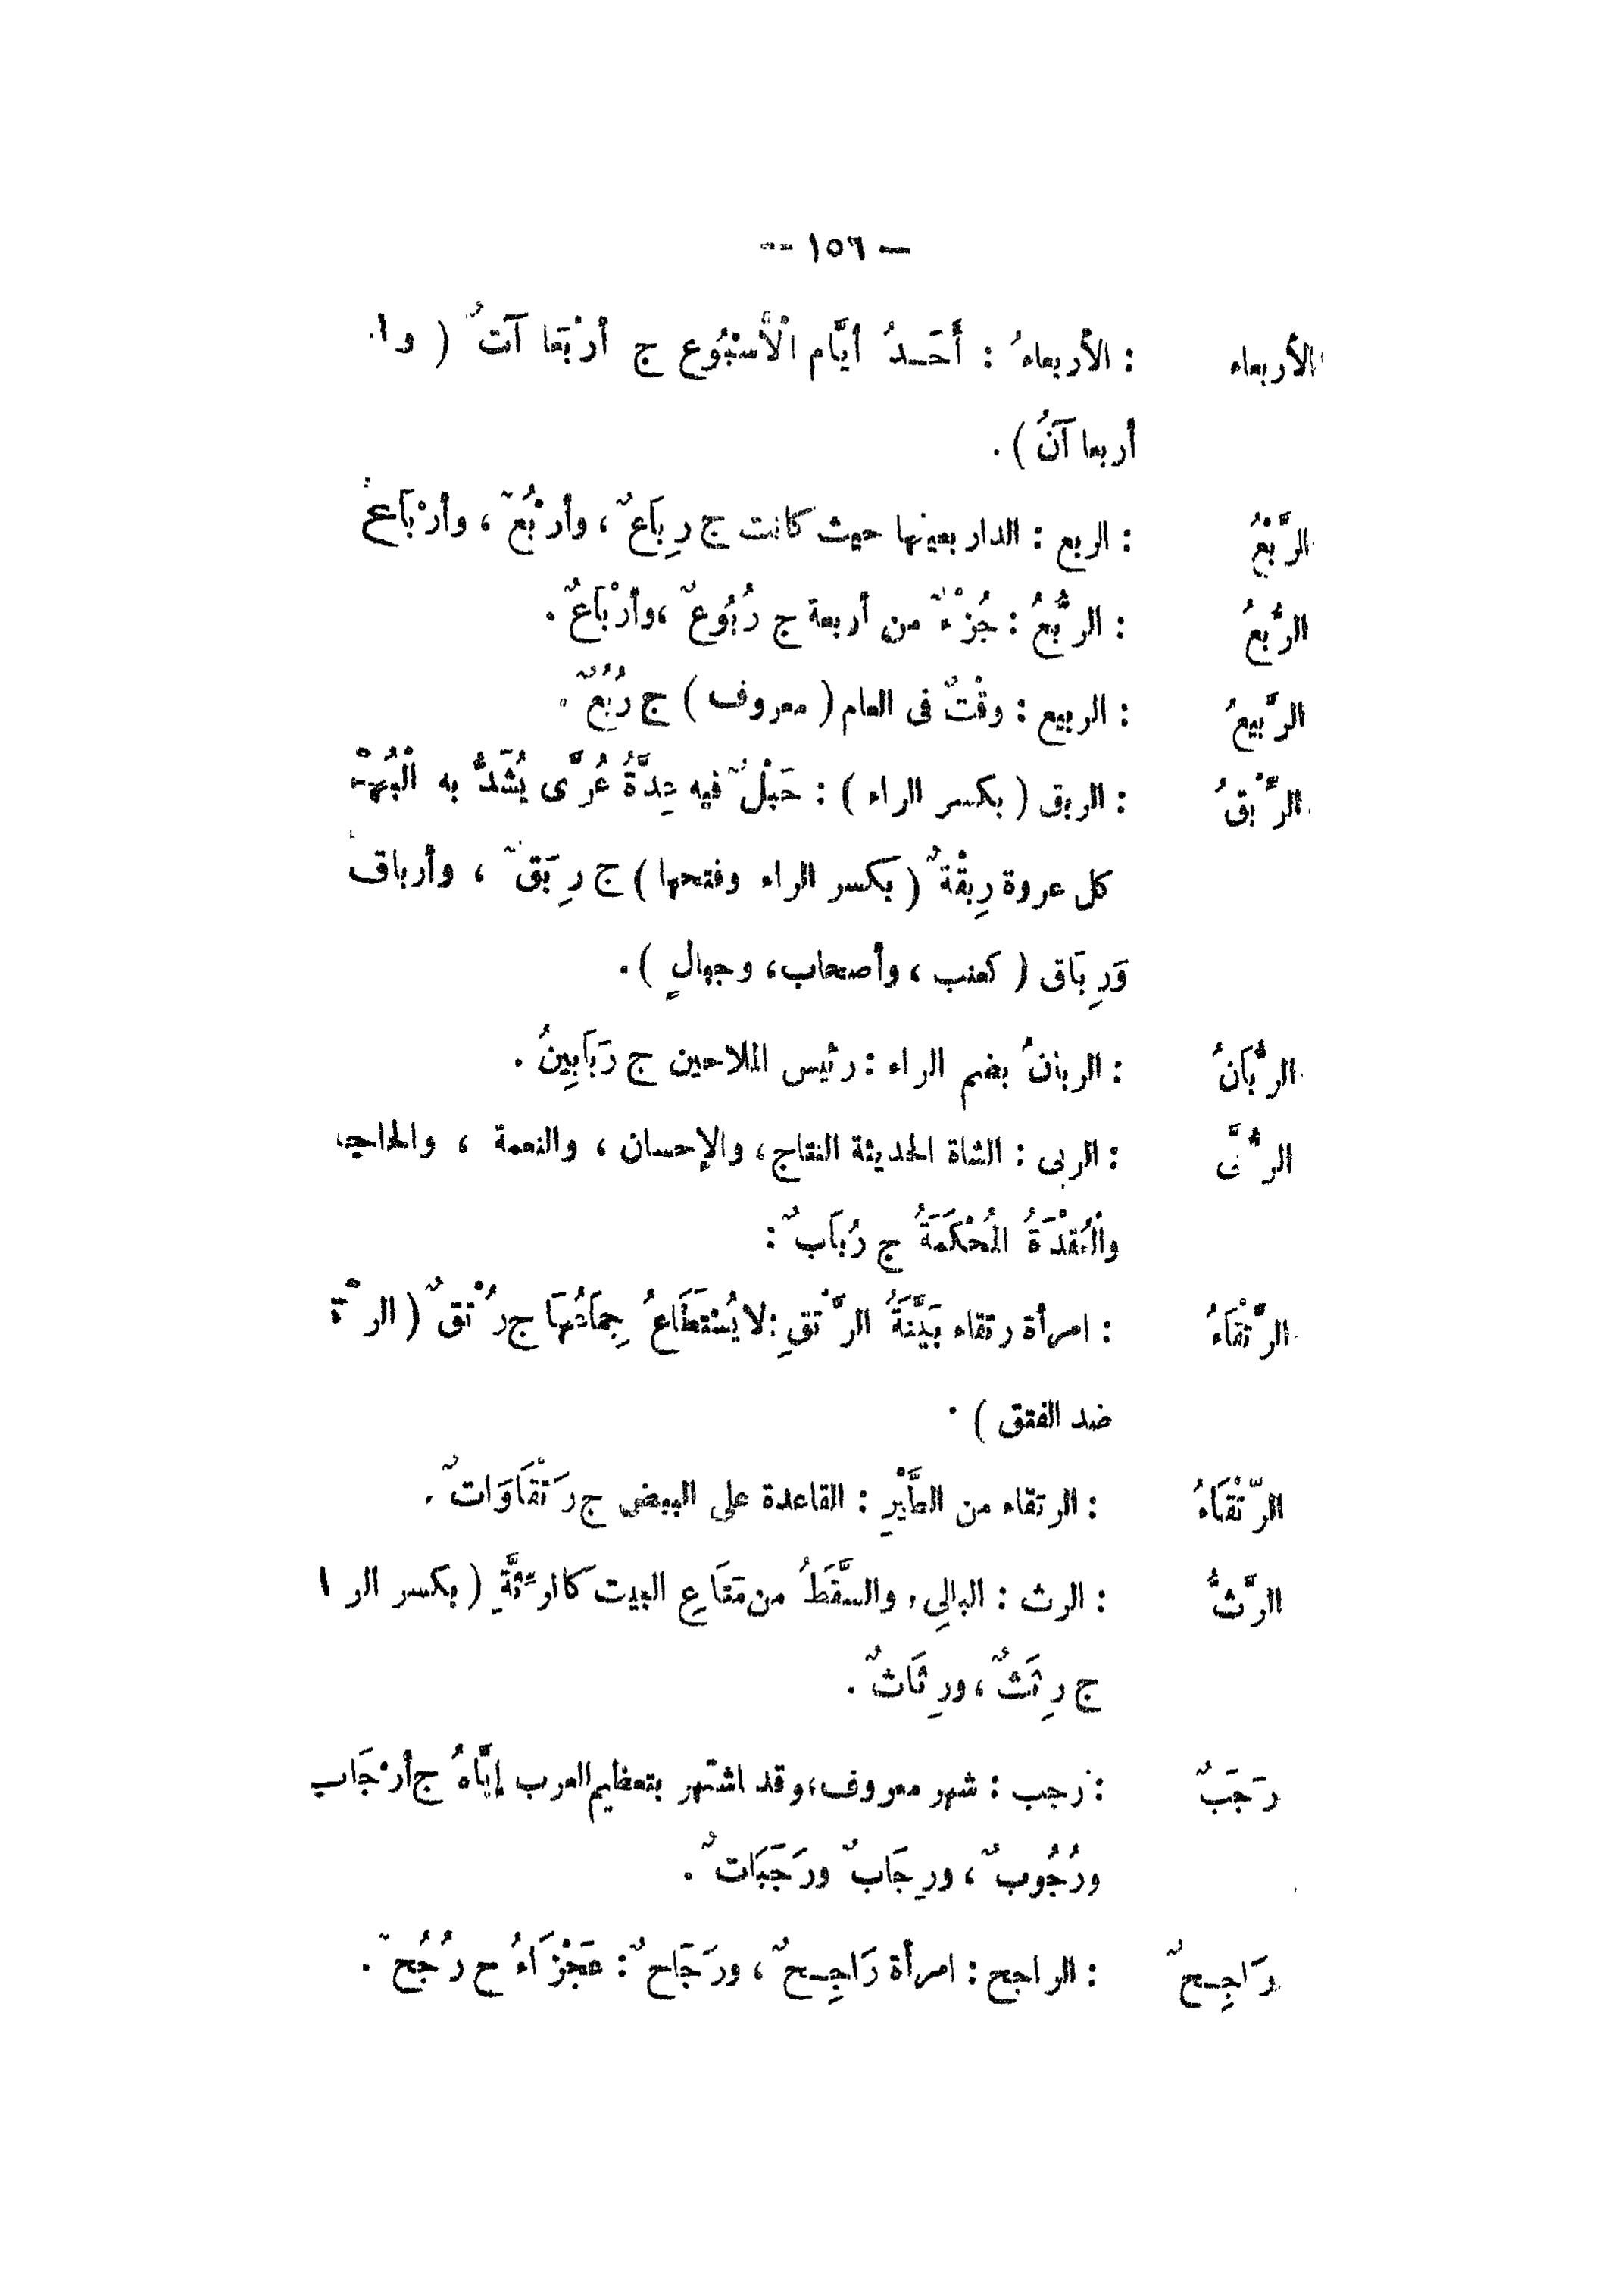 — ١٥٦ —
الأربعاء : الأربعاءُ : أَحَـدُ أيَّام الْأُسْبُوع ج أرْبَعَا آتٌ ( و
أربعا آنُ ) .
الرَّبْعُ : الربع : الدار بعينها حيث كانت ج رِبَاعٌ ، وأرْبُعٌ ، وأرْبَاعٌ
الرُّبعُ : الرُّبُعُ : جُزْءٌ من أربعة ج رُبُوعٌ ،وأرْبَاعٌ .
الرَّبيعُ : الربيع : وقْتٌ فى العام ( معروف ) ج رُبُعٌ .
الرِّبْقُ : الربق ( بكسر الراء ) : حَبْلٌ فيه عِدَّةُ عُرًى يُشَدُّ به
كل عروة رِبقْةٌ ( بكسر الراء وفتحها ) ج رِبَقٌ ، وأرباقٌ
وَرِبَاق ( كعنب ، وأصحاب، وجبالٍ ) .
الرُّبَّانُ : الربانُ بضم الراء : رئيس الملاحين ج رَبَابِينُ .
الرُّبَّى : الربى : الشاة الحديثة النتاج، والإحسان ، والنعمة ،
والْعُقْدَةُ الْمُحْكَمَةُ ج رُبَابٌ :
الرَّتْقَاءُ : امرأة رتقاء بَيِّنَةُ الرَّتقِ:لا يُسْتَطَاعُ جِمَاعُهَا ج رُتْقٌ (
ضد الفتق ) .
الرَّتْقَاءُ : الرتقاء من الطَّيْرِ : القاعدة على البيض ج رَتْقَاوَاتٌ .
الرَّثُّ : الرث : البالِى، والسَّقَطُ من مَتَاعِ البيت كالرِّثَّةِ ( بكسر الرا
ج رِثَثٌ ،ورِثَاثٌ .
رَجَبٌ : رجب : شهر معروف،وقد اشتهر بتعظيم العرب إيَّاهُ ج أرْجَاب
ورُجُوبٌ ، ورِجَابٌ ورَجَبَاتٌ .
رَاجِـحٌ : الراجح : امرأة رَاجِـحٌ ، ورَجَاحٌ : عَجْزَاءُ ج رُجُحٌ .